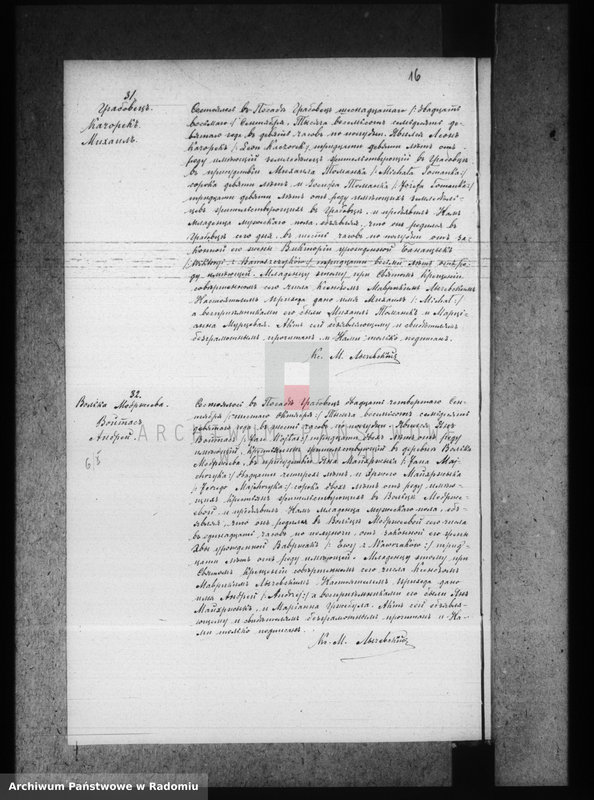 16
31.
Грабовецъ.
Качорекъ.
Михаилъ.
Состоялось въ Посадѣ Грабовецъ шестнадцатаго /: двадцать
восьмаго :/ Сентября, Тысяча восемьсотъ семьдесятъ де-
вятаго года, въ девять часовъ по полудни. Явился Леонъ
Качорекъ /: Leon Kaczorek :/ тридцати девяти лѣтъ отъ
роду имѣющій земледѣлецъ жительствующій въ Грабовцѣ
въ присутствіи Михаила Томанка /: Michała Tomanka :/
сорока девяти лѣтъ, и Іосифа Томанка /: Józefa Tomanka :/
тридцати девяти лѣтъ отъ роду имѣющихъ земледѣль-
цевъ жительствующихъ въ Грабовцѣ, и предъявилъ Намъ
Младенца мужескаго пола, объявляя, что онъ родился въ
Грабовцѣ его дня, въ шесть часовъ по полудни отъ за-
конной его жены Викторіи урожденной Банащекъ
/: Wiktoryi z Banaszczyków :/ тридцати восьми лѣтъ отъ ро-
ду имѣющей. Младенцу этому при Святомъ Крещеніи
совершенномъ его числа Ксендзомъ Маврикіемъ Лычевскимъ
Настоятелемъ прихода дано имя Михаилъ /: Michał :/
а воспріемниками его были Михаилъ Томанекъ и Марці-
анна Мурцова. Актъ сей объявляющему и свидѣтелямъ
безграмотнымъ прочитанъ и Нами только подписанъ.
Кс. М. Лычевскій
32.
Волька Модржеёва.
Войтасъ
Андрей.
Состоялось въ Посадѣ Грабовецъ двадцать четвертаго Сен-
тября /: шестаго Октября :/ Тысяча восемьсотъ семьдесятъ
девятаго года, въ шесть часовъ по полудни. Явился Янъ
Войтасъ /: Jan Wojtas :/ тридцати двухъ лѣтъ отъ роду
имѣющій, крестьянинъ жительствующій въ деревни Волька
Модржеёва, въ присутствіи Яна Майхржика /: Jana Maj-
chrzyka :/ двадцати четырехъ лѣтъ, и Ержего Майхржика
/: Jerzego Majchrzyka :/ сорока двухъ лѣтъ отъ роду имѣю-
щихъ крестьянъ жительствующихъ въ Вольцѣ Модрже-
ёвой и предъявилъ Намъ младенца мужескаго пола, объ-
являя, что онъ родился въ Вольцѣ Модржеёвой его числа
въ одинадцать часовъ по полуночи, отъ законной его жены
Евы урожденной Ваврщакъ /: Ewy z :/ трид-
цати лѣтъ отъ роду имѣющей. Младенцу этому при
Святомъ Крещеніи совершенномъ его числа Ксендзомъ
Маврикіемъ Лычевскимъ Настоятелемъ прихода дано
имя Андрей /: Andrzej :/ а воспріемниками его были Янъ
Майхржикъ, и Маріанна. Актъ сей объявля-
ющему и свидѣтелямъ безграмотнымъ прочитанъ и На-
ми только подписанъ.
Кс. М. Лычевскій
Archiwum Państwowe w Radomiu